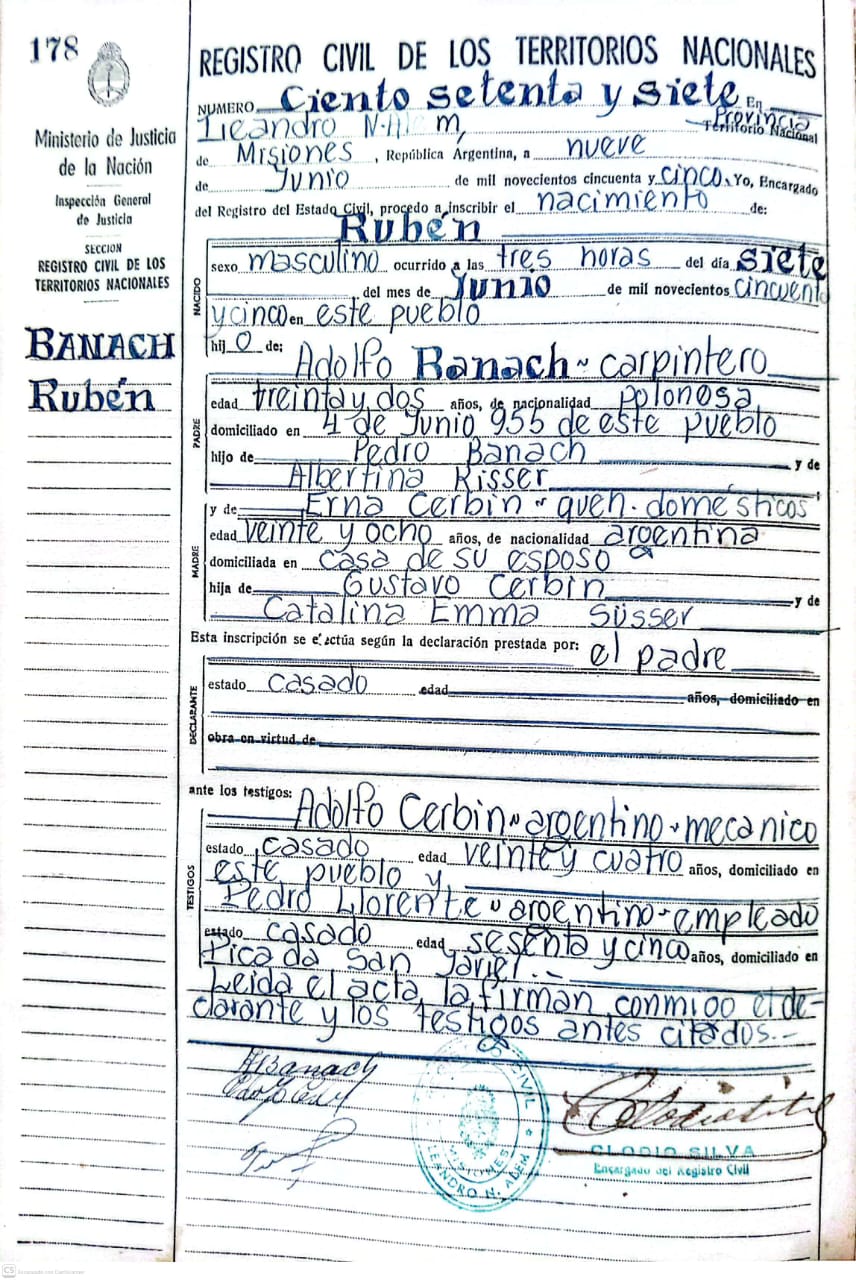 178
Ministerio de Justicia
de la Nación
Inspección General
de Justicia
SECCION
REGISTRO CIVIL DE LOS
TERRITORIOS NACIONALES
BANACH
Rubén
REGISTRO CIVIL DE LOS TERRITORIOS NACIONALES
NUMERO Ciento setenta y siete En
Leandro N. Alem, Provincia
Territorio Nacional
de Misiones, República Argentina, a nueve
de Junio de mil novecientos cincuenta y cinco. Yo, Encargado
del Registro del Estado Civil, procedo a inscribir el nacimiento de:
Rubén
NACIDO
sexo masculino ocurrido a las tres horas del día siete
del mes de Junio de mil novecientos cincuenta
y cinco en este pueblo
hijo de:
Adolfo Banach - carpintero
PADRE
edad treinta y dos años, de nacionalidad polonesa
domiciliado en 4 de Junio 955 de este pueblo
hijo de Pedro Banach y de
Albertina Risser
MADRE
y de Erna Cerbin - queh. domésticos
edad veinte y ocho años, de nacionalidad argentina
domiciliada en casa de su esposo
hija de Gustavo Cerbin y de
Catalina Emma Süsser
Esta inscripción se efectúa según la declaración prestada por: el padre
DECLARANTE
estado casado edad años, domiciliado en
obra en virtud de
ante los testigos:
Adolfo Cerbin - argentino - mecanico
TESTIGOS
estado casado edad veinte y cuatro años, domiciliado en
este pueblo y
Pedro Llorente - argentino - empleado
estado casado edad sesenta y cinco años, domiciliado en
Picada San Javier.-
Leida el acta, la firman conmigo el de-
clarante y los testigos antes citados.-
ABanach
CIVIL
MISIONES
LEANDRO N. ALEM
CLODIO SILVA
Encargado del Registro Civil
CS Escaneado con CamScanner